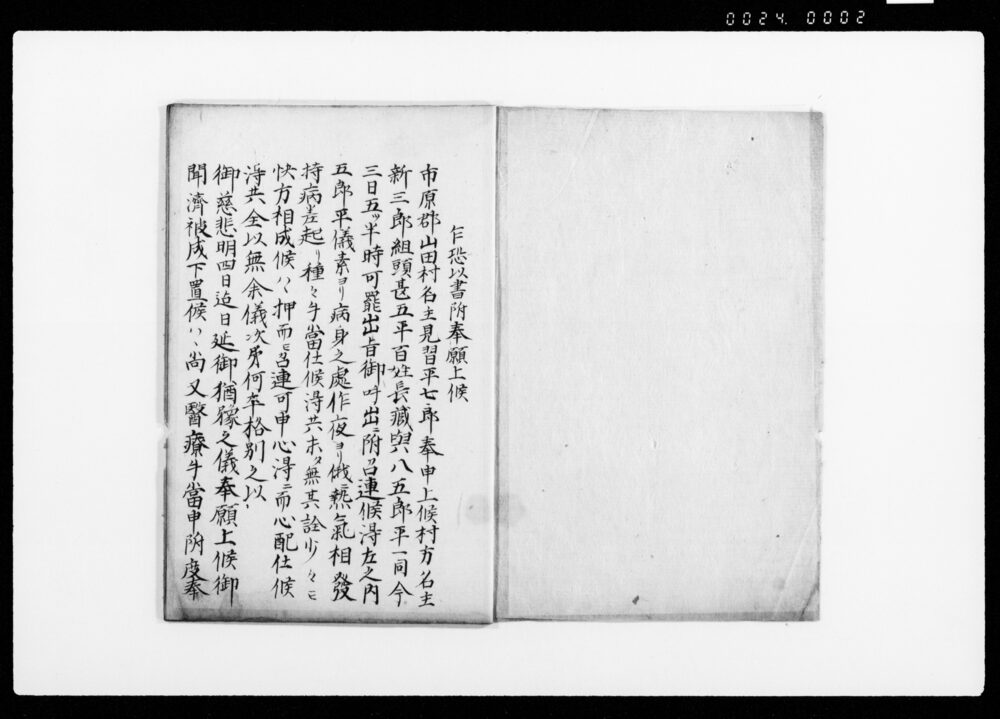 0024. 0002
乍恐以書附奉願上候
市原郡山田村名主見習平七郎奉申上候村方名主
新三郎組頭甚五平百姓長藏與八五郎平一同今
三日五ッ半時可罷出旨御呼出ニ附召連候得左之内
五郎平儀素ヨリ病身之處作夜ヨリ俄ニ熱氣相發
持病差起リ種々手當仕候得共未タ無其詮少々ニ
快方相成候ハヽ押而も召連可申心得ニ而心配仕候
得共全以無余儀次第何卒格別之以
御慈悲明四日迠日延御猶豫之儀奉願上候御
聞濟被成下置候ハヽ尚又醫療手當申附度奉